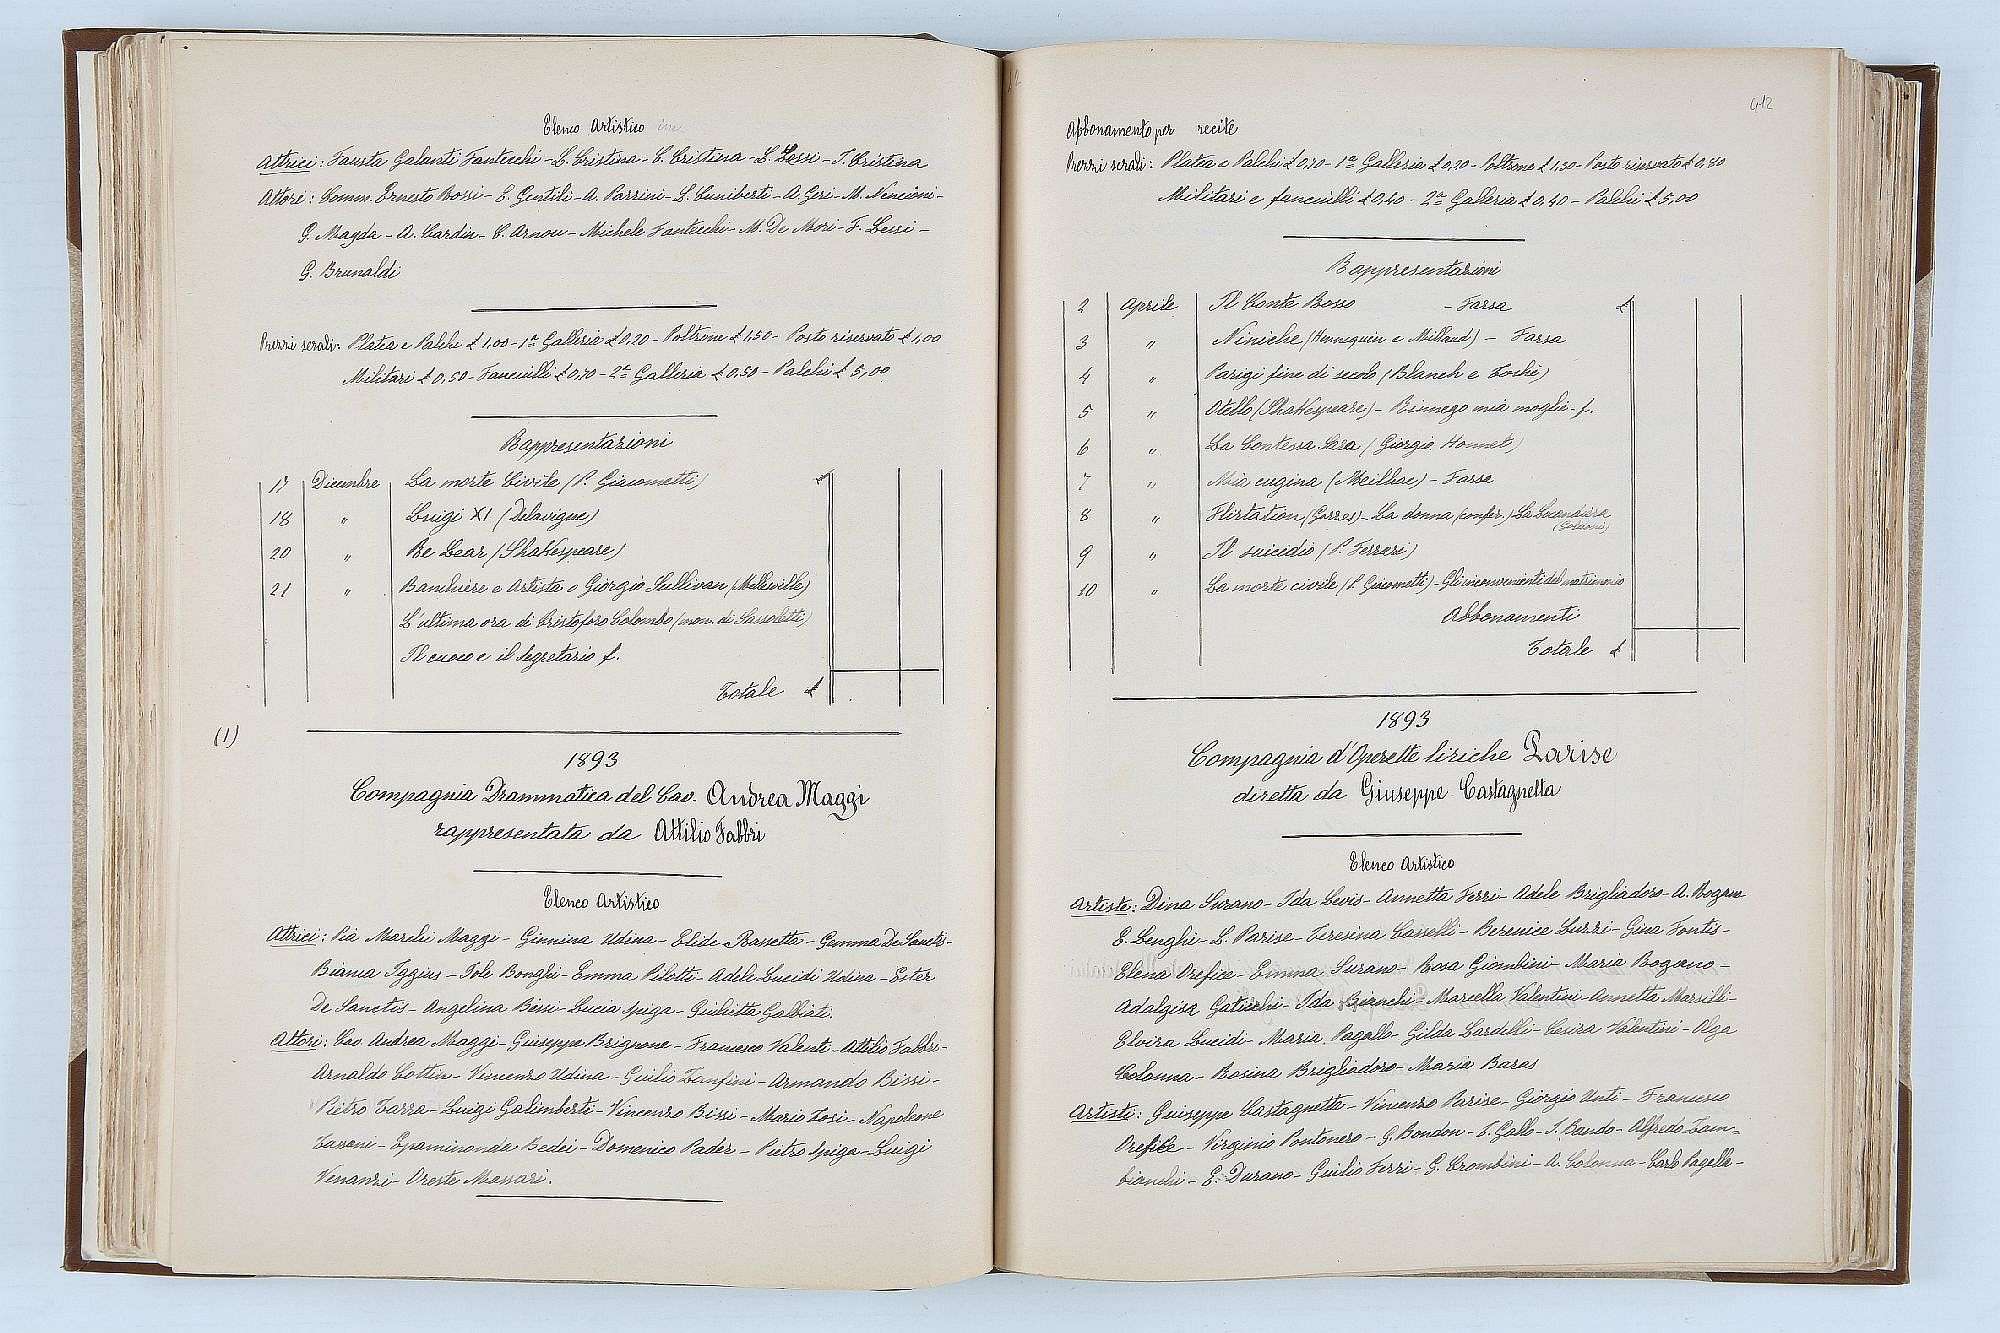 Elenco Artistico
Attrici: Fausta Galanti Fantecchi - L. Cristina - C. Cristina - L. Lessi - I. Cristina
Attori: Comm. Ernesto Rossi - E. Gentili - A. Parrini - L. Cuniberti - A. Geri - M. Nincioni -
G. Magda - A. Cardin - C. Arnou - Michele Fantecchi - M. De Mori - F. Lessi -
G. Brunaldi
Prezzi serali: Platea e Palchi £ 1,00 - 1ª Galleria £ 0,20 - Poltrone £ 1,50 - Posto riservato £ 1,00
Militari £ 0,50 - Fanciulli £ 0,70 - 2ª Galleria £ 0,50 - Palchi £ 5,00
Rappresentazioni
17 Dicembre La morte Civile (P. Giacometti) £
18 " Luigi XI (Delavigne)
20 " Re Lear (Shakespeare)
21 " Banchiere e Artista o Giorgio Sullivan (Melleville)
L'ultima ora di Cristoforo Colombo (mon. di Sassoletti)
Il cuoco e il segretario f.
Totale £
(1)
1893
Compagnia Drammatica del Cav. Andrea Maggi
rappresentata da Attilio Fabbri
Elenco Artistico
Attrici: Pia Marchi Maggi - Giannina Udina - Elide Rossetto - Gemma De Sanctis -
Bianca Iggius - Iole Bonghi - Emma Pilotti - Adele Lucidi Udina - Ester
De Sanctis - Angelina Bissi - Lucia Spiga - Giulietta Galbiati.
Attori: Cav. Andrea Maggi - Giuseppe Brignone - Francesco Valenti - Attilio Fabbri -
Arnaldo Cottin - Vincenzo Udina - Giulio Zanfini - Armando Bissi -
Pietro Zarra - Luigi Galimberti - Vincenzo Bissi - Mario Tosi - Napoleone
Zavoni - Epaminonda Bedei - Domenico Pader - Pietro Spiga - Luigi
Venanzi - Oreste Massari.
412
Abbonamento per recite
Prezzi serali: Platea e Palchi £ 0,70 - 1ª Galleria £ 0,20 - Poltrone £ 1,30 - Posto riservato £ 0,80
Militari e fanciulli £ 0,40 - 2ª Galleria £ 0,40 - Palchi £ 5,00
Rappresentazioni
2 Aprile Il Conte Rosso - Farsa £
3 " Niniche (Hennequin e Millaud) - Farsa
4 " Parigi fine di secolo (Blanch e Toché)
5 " Otello (Shakespeare) - Rinnego mia moglie - f.
6 " La Contessa Sara (Giorgio Honnet)
7 " Mia cugina (Meilhac) - Farsa
8 " Flirtation - La donna (confer.) La Locandiera
(Goldoni)
9 " Il suicidio (P. Ferrari)
10 " La morte civile (P. Giacometti) - Gli inconvenienti del matrimonio
Abbonamenti
Totale £
1893
Compagnia d'Operette liriche Parise
diretta da Giuseppe Castagnetta
Elenco Artistico
Artiste: Dina Surano - Ida Levis - Annetta Ferri - Adele Brigliadoro - A. Bogam
E. Lenghi - L. Parise - Teresina Casselli - Berenice Luzzi - Gina Fontis -
Elena Orefice - Emma Surano - Rosa Giombini - Maria Bogano -
Adalgisa Gaticchi - Ida Bianchi - Marcella Valentini - Annetta Marilli -
Elvira Lucidi - Maria Pagallo - Gilda Lardelli - Cesira Valentini - Olga
Colonna - Rosina Brigliadoro - Maria Baras
Artisti: Giuseppe Castagnetta - Vincenzo Parise - Giorgio Unti - Francesco
Orefice - Virginio Pontonero - G. Bondon - E. Gallo - I. Bando - Alfredo Zam-
bianchi - E. Durano - Giulio Ferri - G. Crombini - A. Colonna - Carlo Pagella -